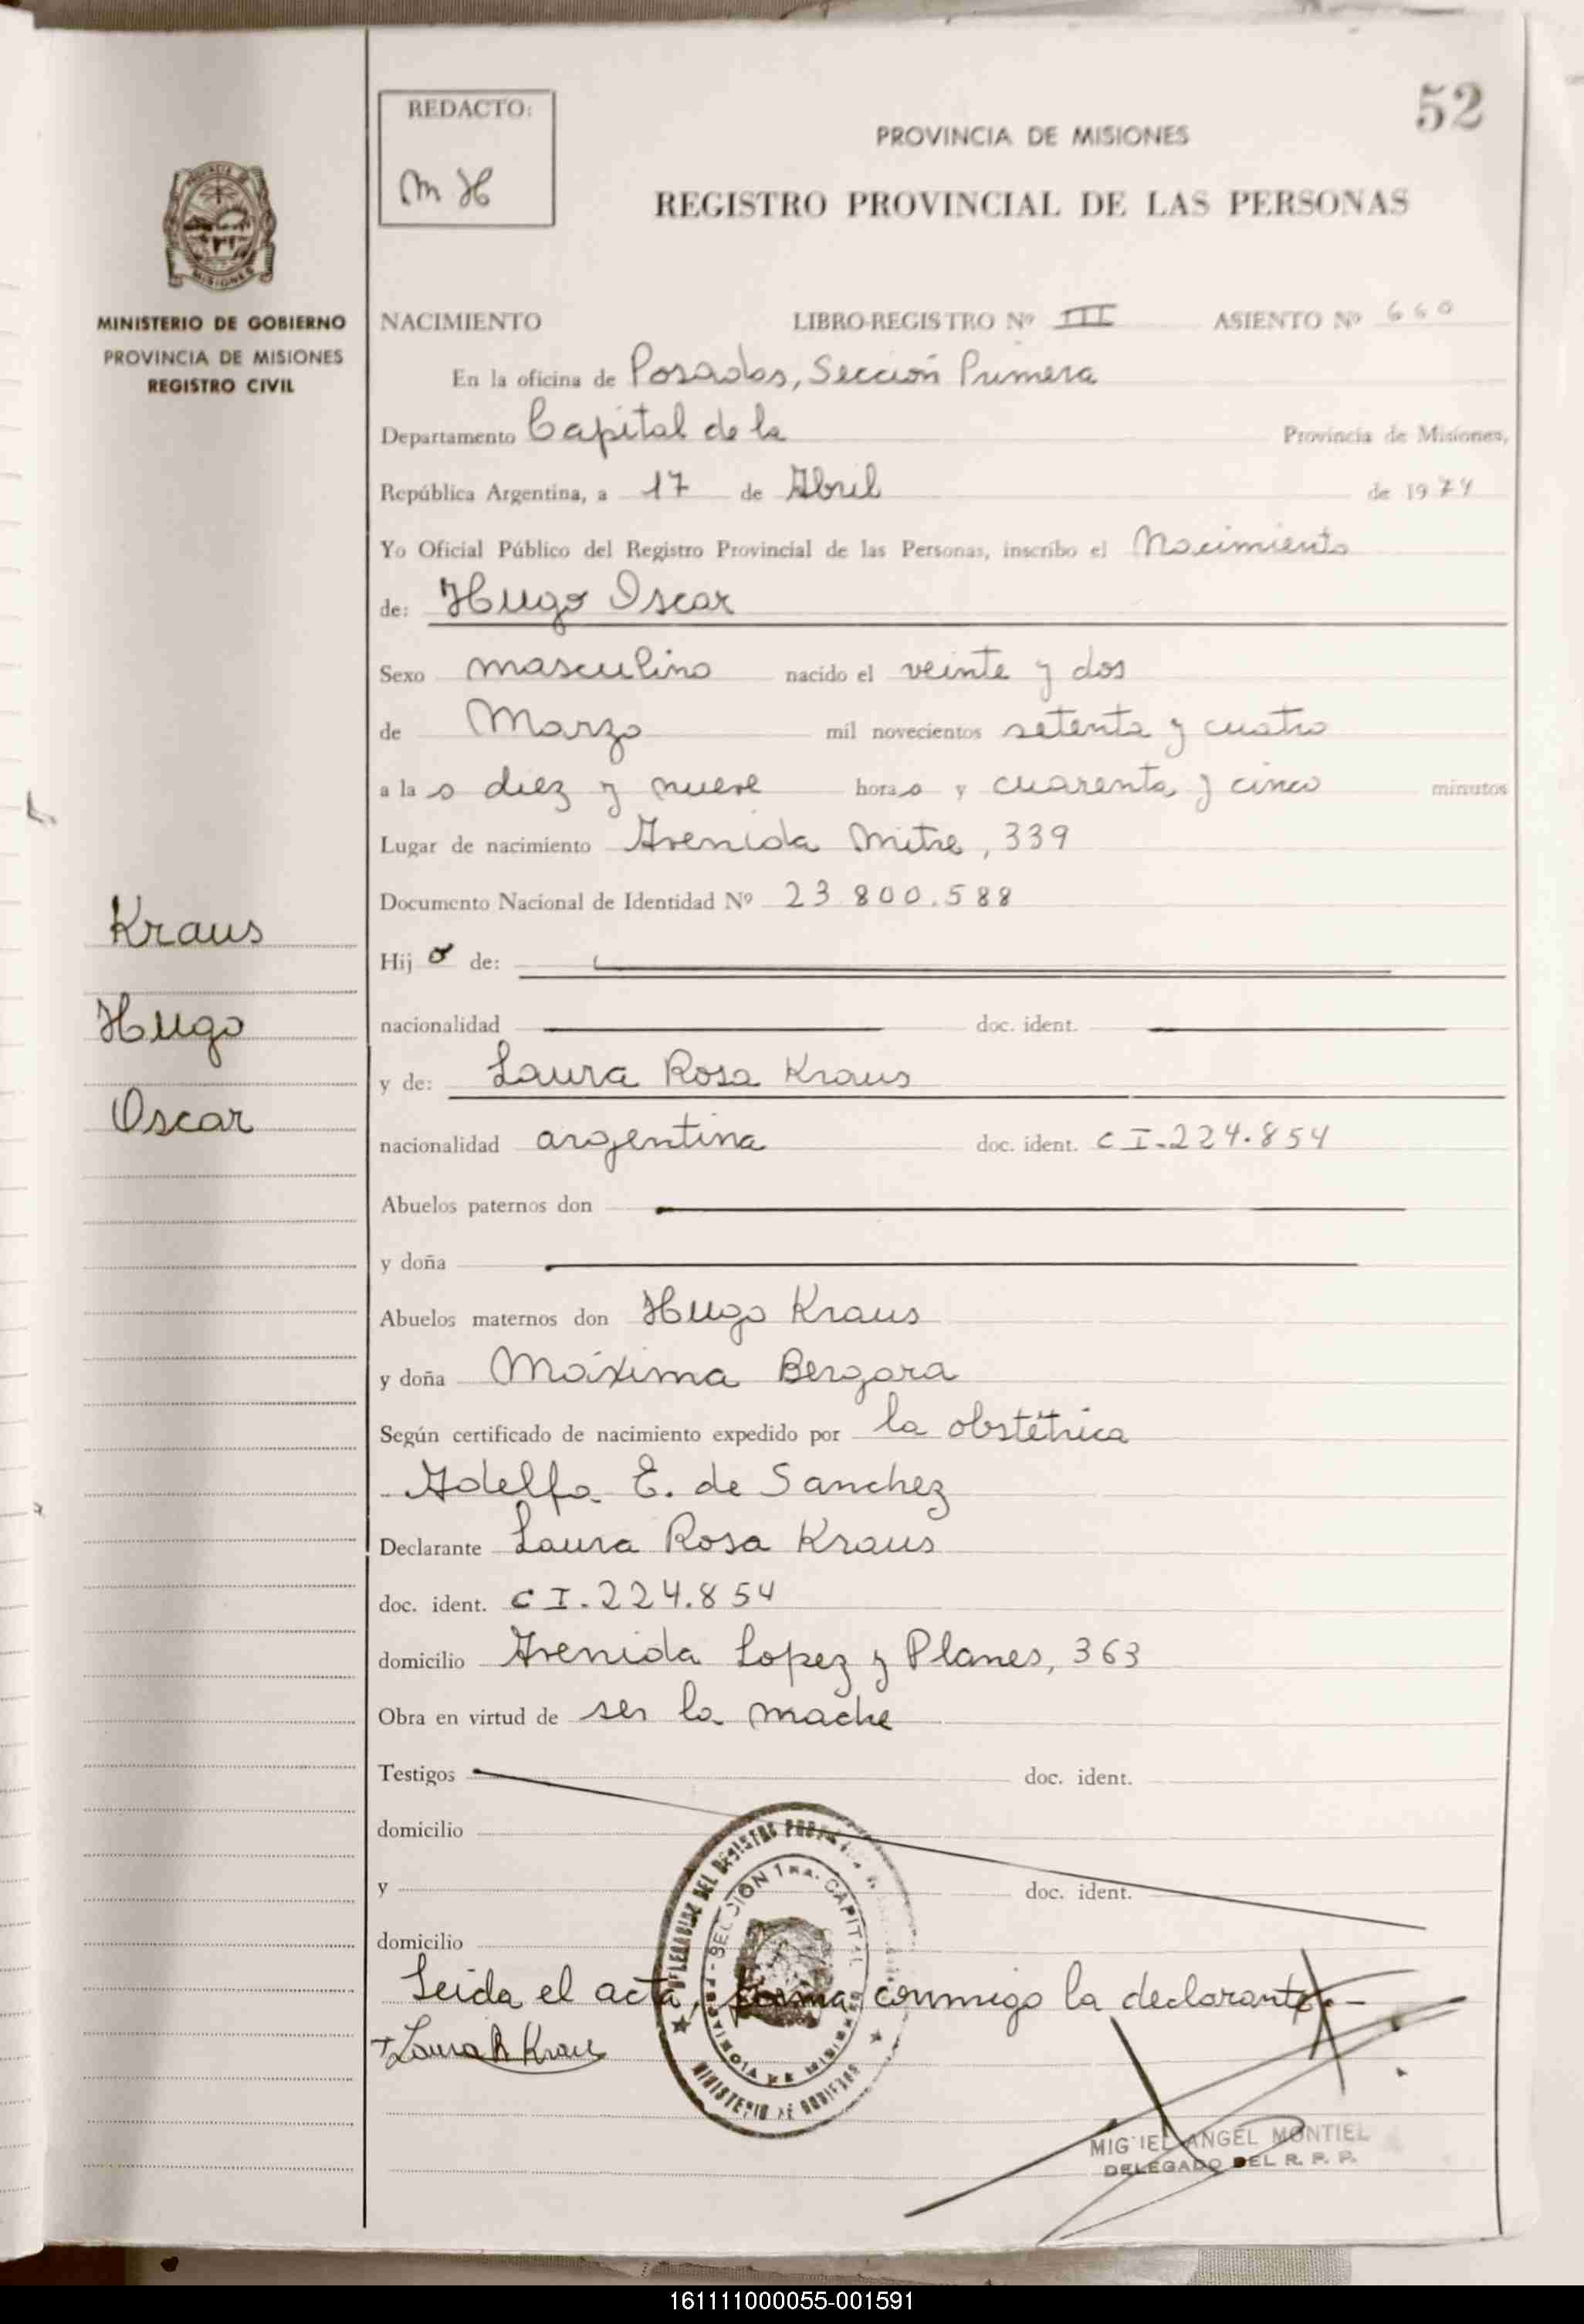 52
REDACTO:
M H
PROVINCIA DE MISIONES
REGISTRO PROVINCIAL DE LAS PERSONAS
MINISTERIO DE GOBIERNO
PROVINCIA DE MISIONES
REGISTRO CIVIL
NACIMIENTO LIBRO-REGISTRO Nº III ASIENTO Nº 660
En la oficina de Posadas, Sección Primera
Departamento Capital de la Provincia de Misiones,
República Argentina, a 17 de Abril de 1974
Yo Oficial Público del Registro Provincial de las Personas, inscribo el Nacimiento
de: Hugo Oscar
Sexo masculino nacido el veinte y dos
de Marzo mil novecientos setenta y cuatro
a la s diez y nueve hora s y cuarenta y cinco minutos
Lugar de nacimiento Avenida Mitre, 339
Documento Nacional de Identidad Nº 23.800.588
Kraus
Hugo
Oscar
Hij o de:
nacionalidad doc. ident.
y de: Laura Rosa Kraus
nacionalidad argentina doc. ident. C I-224.854
Abuelos paternos don
y doña
Abuelos maternos don Hugo Kraus
y doña Máxima Bergara
Según certificado de nacimiento expedido por la obstétrica
Adelfa E. de Sanchez
Declarante Laura Rosa Kraus
doc. ident. C I-224.854
domicilio Avenida Lopez y Planes, 363
Obra en virtud de ser la madre
Testigos doc. ident.
domicilio
y doc. ident.
domicilio
Leida el acta, firma conmigo la declarante.-
Laura R Kraus
SECCION 1ra. CAPITAL
PROVINCIA DE MISIONES
MINISTERIO DE GOBIERNO
MIGUEL ANGEL MONTIEL
DELEGADO DEL R. P. P.
161111000055-001591